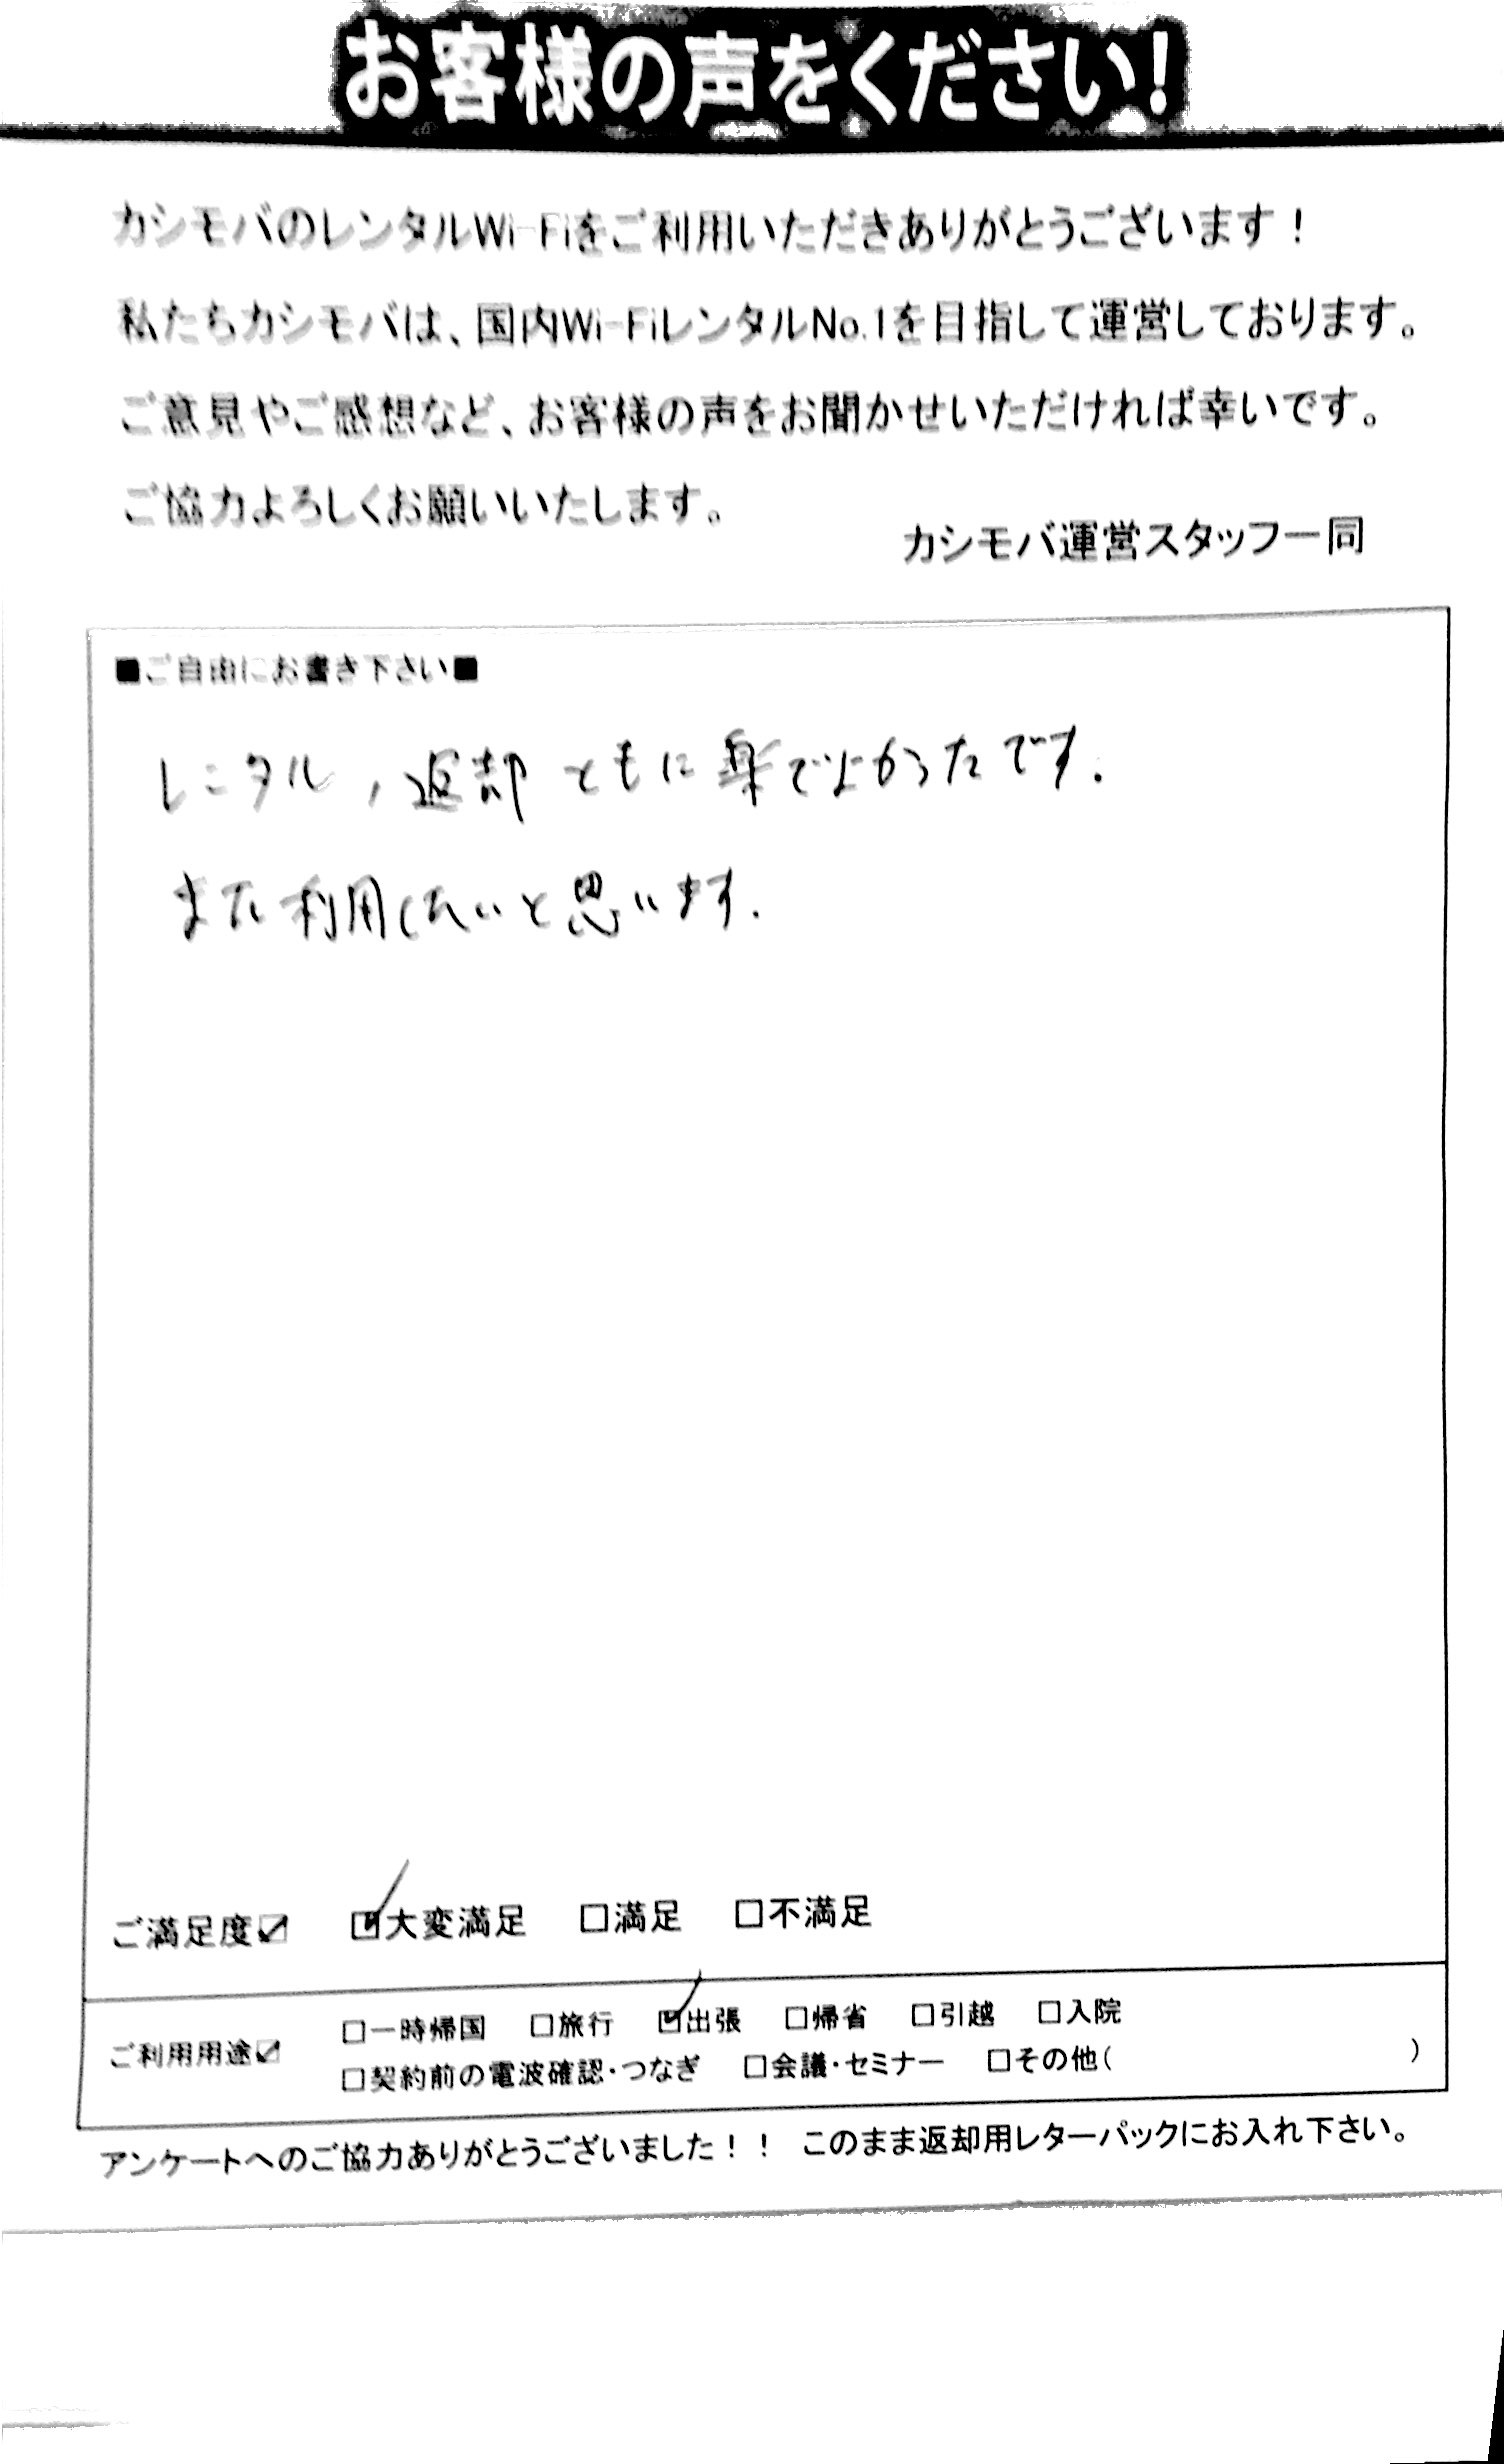 お客様の声をください!
カシモバのレンタルWi-Fiをご利用いただきありがとうございます！
私たちカシモバは、国内Wi-FiレンタルNo.1を目指して運営しております。
ご意見やご感想など、お客様の声をお聞かせいただければ幸いです。
ご協力よろしくお願いいたします。
カシモバ運営スタッフ一同
■ご自由にお書き下さい■
レンタル，返却ともに楽でよかったです.
また利用したいと思います.
ご満足度☑ ☑大変満足 □満足 □不満足
ご利用用途☑ □一時帰国 □旅行 ☑出張 □帰省 □引越 □入院
□契約前の電波確認・つなぎ □会議・セミナー □その他( )
アンケートへのご協力ありがとうございました！！ このまま返却用レターパックにお入れ下さい。